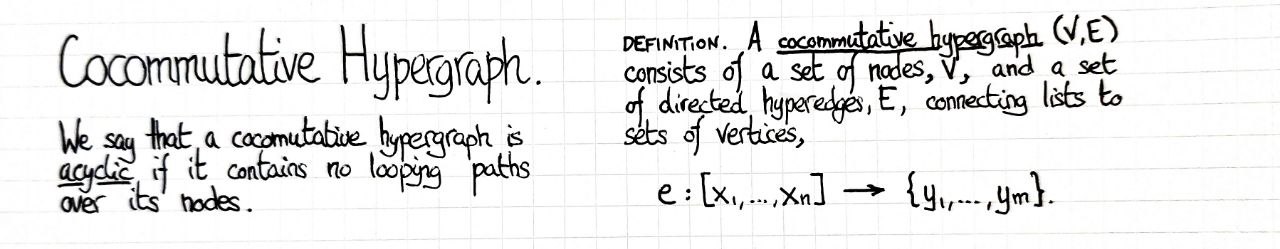 Cocommutative Hypergraph.
We say that a cocomutative hypergraph is
acyclic if it contains no looping paths
over its nodes.
DEFINITION. A cocommutative hypergraph (V,E)
consists of a set of nodes, V, and a set
of directed hyperedges, E, connecting lists to
sets of vertices,
e : [x₁,...,xₙ] → {y₁,...,yₘ}.